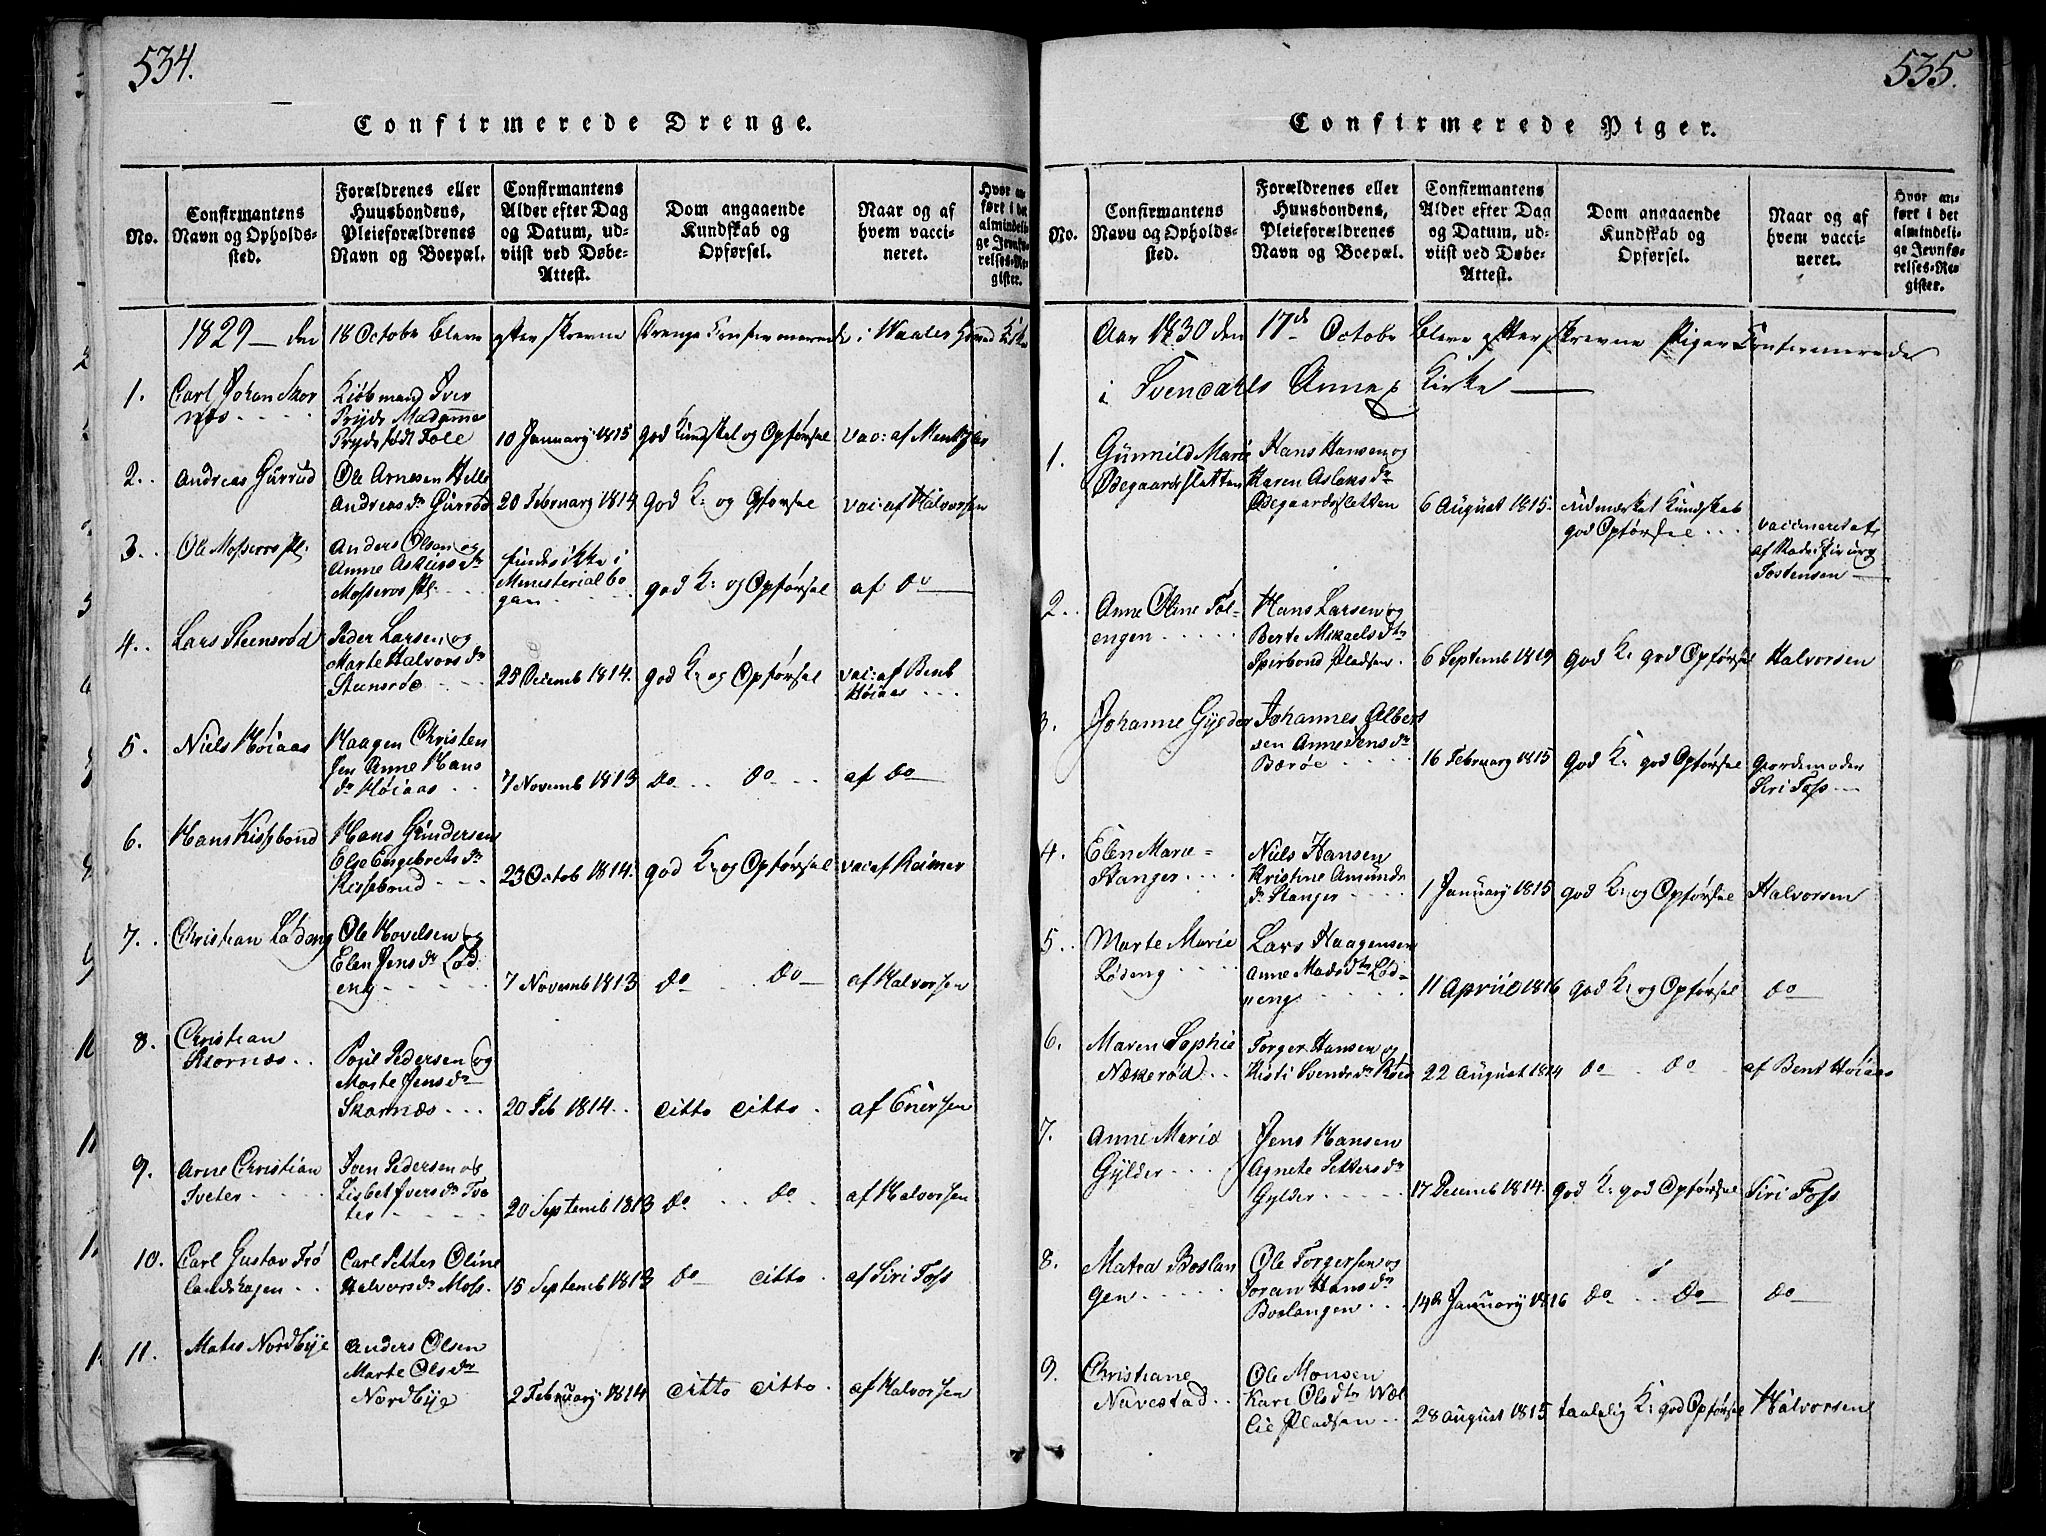 534.
Confirmerede Drenge.
No.
Confirmantens Navn og Opholds-sted.
Forældrenes eller Huusbondens, Pleieforældrenes Navn og Boepæl.
Confirmantens Alder efter Dag og Datum, ud-viist ved Døbe-Attest.
Dom angaaende Kundskab og Opførsel.
Naar og af hvem vacci-neret.
Hvor an-ført i det almindeli-ge Jevnfø-relses-Re-gister.
1829 — den 18 Octobr bleve efterskrevne Drenge Confirmerede i Waaler
1. Carl Johan Skor
næs
Kiøbmand Iver
Pryds Madamme
Pryds født Tolle
10 January 1815
god Kundskab og Opførsel
vac: af
2. Andreas Gurrud
Ole Arnesen Helle
Andreas dr Gurrød
20 February 1814
god K: og Opførsel
vac: af Halvorsen
3. Ole Mosseros pl:
Anders Olsen og
Anne Askurs dr
Mosseros pl:
findes ikke i
Ministerialbo
gen
god K: og Opførsel
af do
4. Lars Steensrød
Peder Larsen og
Marte Halvors dr
Steensrød
25 Decemb 1814.
god K: og Opførsel
vac: af Bent
Høiaas
5. Niels Høiaas
Haagen Christen
sen Anne Hans
dr Høiaas
7 Novemb 1813
do do
af do
6. Hans Kissebond
Hans Gundersen
Else Engebrets dr
Kissebond
23 Octob 1814.
god K: og Opførsel
vac: af Reimer
7. Christian Lødeng
Ole Hovelsen og
Elen Jens dr Lød
eng
7 Novemb 1813
do do
af Halvorsen
8. Christian
Skornæs
Poul Pedersen og
Marte Jens dr
Skornæs
20 Feb 1814.
ditto ditto
af Enersen
9. Arne Christian
Tveter
Sven Pedersen og
Lisbet Ivers dr Tve
ter
20 Septemb 1813
do do
af Halvorsen
10. Carl Gustav Frø
landshagen
Carl Petter Oline
Halvors dr Moss
15 Septemb 1813
do ditto
af Siri Foss
11. Mates Nordbye
Anders Olsen
Marte Ols dr
Nordbye
2 February 1814
ditto ditto
af Halvorsen
535.
Confirmerede Piger.
No.
Confirmantens Navn og Opholds-sted.
Forældrenes eller Huusbondens, Pleieforældrenes Navn og Boepæl.
Confirmantens Alder efter Dag og Datum, ud-viist ved Døbe-Attest.
Dom angaaende Kundskab og Opførsel.
Naar og af hvem vacci-neret.
Hvor an-ført i det almindeli-ge Jevnfø-relses-Re-gister.
Aar 1830 den 17de Octobr bleve efterskrevne Piger Confirmerede
i Svendahls Annex Kirke
1. Gunnild Marie
Ødegaardsslatten
Hans Hansen og
Karen Aslaks dr
Ødegaardsslatten
6 August 1815.
udmærket Kundskab
god Opførsel
vaccineret af
Tostensen
2. Anne Oline Føl-
engen
Hans Larsen og
Berte Mikaels dtr
Spirbond Pladsen
6 Septemb 1819
god K: god Opførsel
Halvorsen
3. Johanne Gylder
Johannes Albert
sen Anne Jens dr
Bærøe
16 February 1815
god K: god Opførsel
Gjordemoder
Siri Foss
4. Elen Marie
Stanger
Niels Hansen
Kristine Amunds
dr Stanger
1 January 1815
god K: og Opførsel
Halvorsen
5. Marte Marie
Lødeng
Lars Haagensen
Anne Mads dtr Lød-
eng
11 Apriil 1816
god K: og Opførsel
do
6. Maren Sophie
Nækerød
Torger Hansen og
Kisti Svends dr
22 August 1814
do do
af Bent Høiaas
7. Anne Maria
Gylder
Jens Hansen
Agnete Petters dr
Gylder
17 Decemb 1814.
god K: god Opførsel
Siri Foss
8. Matea Boslan
gen
Ole Torgersen og
Joran Hans dr
Boslangen
14de January 1816
do do
do
9. Christiane
Navestad
Ole Monsen
Kari Ols dtr Wæl
lie Pladsen
28 August 1815
taalelig K: god Opførsel
Halvorsen